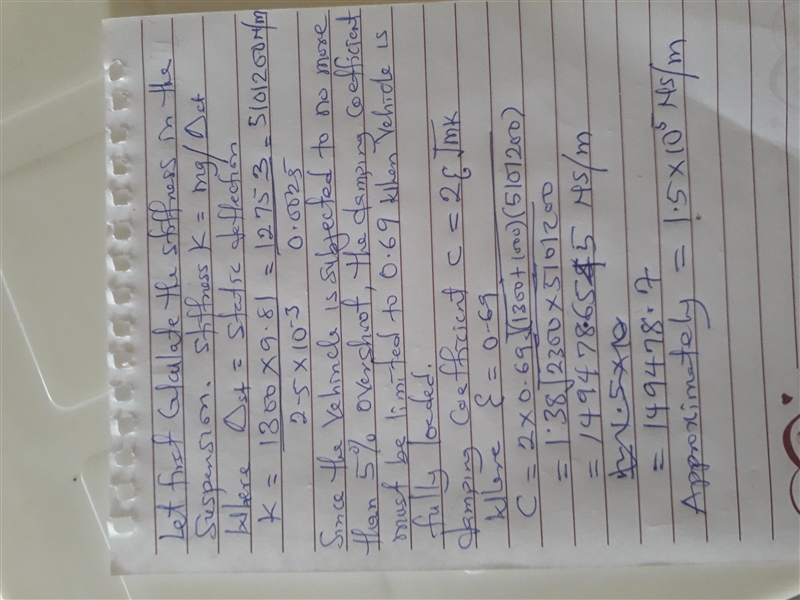 Let first Calculate the stiffness in the
Suspension. Stiffness K = mg/Δst
Where Δst = Static deflection
K = 1300 × 9.81 = 12753 = 5101200N/m
2.5 × 10-3 0.0025
Since the Vehincle is Subjected to no more
than 5% overshoot, the damping Coefficient
must be limited to 0.69 when Vehicle is
fully loaded.
damping Coefficient C = 2ξ√mK
Where ξ = 0.69
C = 2 × 0.69√(1300+1000)(5101200)
= 1.38√2300 × 5101200
= 149478.6545 NS/m
≈ 1.5 × 10
= 149478.7
Approximately = 1.5 × 10⁵ NS/m